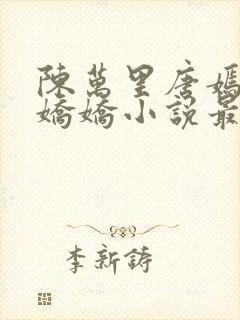 陳萬里唐嫣
嬌嬌小說最
李新鑄